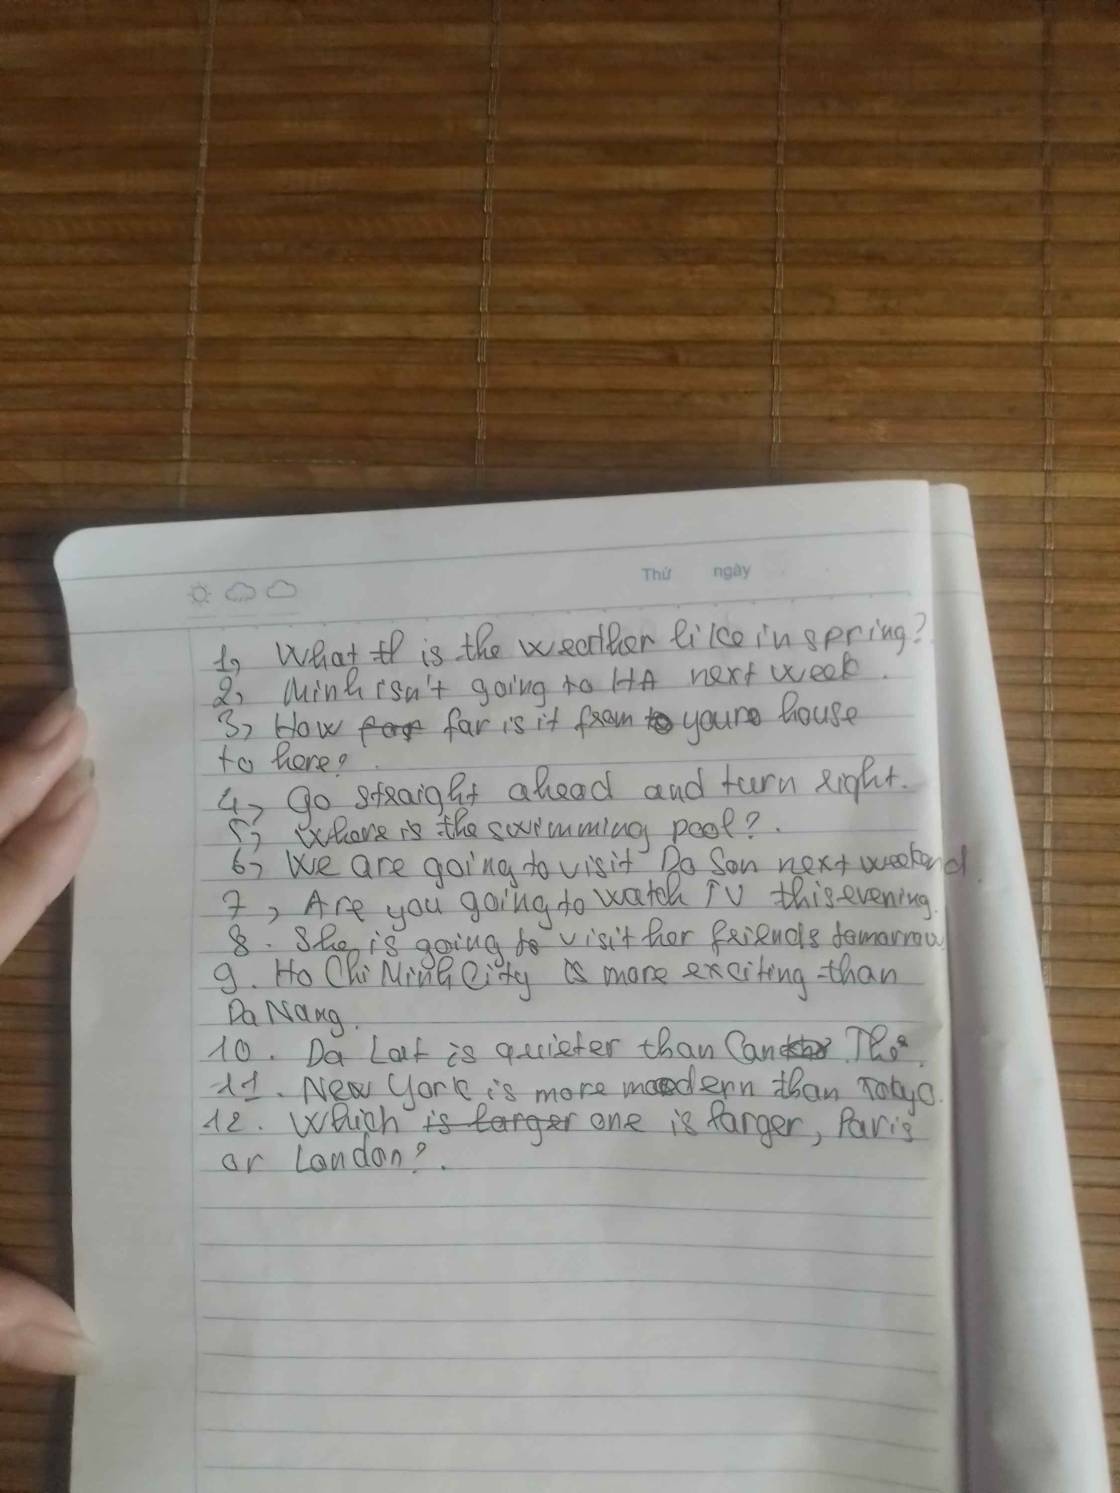 Thứ ngày
1, What is the weather like in spring?
2, Minh isn't going to HA next week.
3, How far is it from your house
to here?
4, Go straight ahead and turn right.
5, Where is the swimming pool?.
6, We are going to visit Do Son next weekend.
7, Are you going to watch TV this evening.
8. She is going to visit her friends tomorrow
9. Ho Chi Minh City is more exciting than
Da Nang.
10. Da Lat is quieter than Can Tho.
11. New York is more modern than Tokyo.
12. Which is larger one is larger, Paris
or London?.